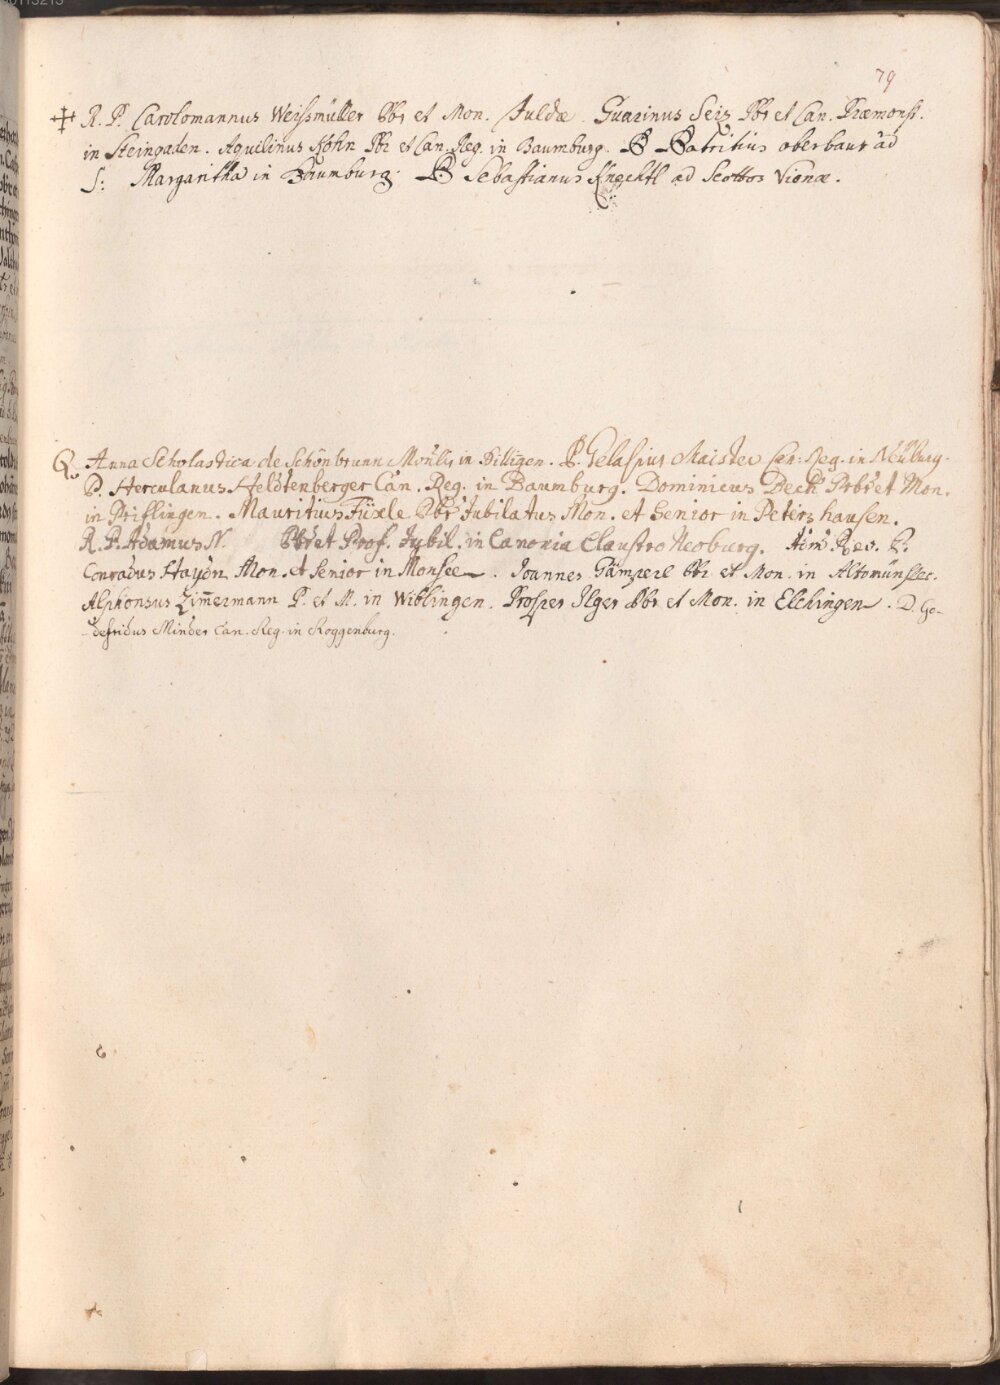 79
R. P. Carolomannus Weissmüller Pbr et Mon. Fuldæ. Guarinus Seiz Pbr et Can. Præmonst.
in Steingaden. Aquilinus Köhn Pbr et Can. Reg. in Baumburg. P. Patritius oberbaur ad
S: Margaritha in Baumburg. P. Sebastianus Knechtl ad Scottos Vienæ.
Anna Scholastica de Schönbrunn Monlis in Billigen. P. Gelasius Maister Can: Reg. in Neüburg.
P. Herculanus Heldtenberger Can. Reg. in Baumburg. Dominicus Beck Prbr et Mon.
in Priflingen. Mauritius Füxle Pbr Jubilatus Mon. et Senior in Petershausen.
R. P. Adamus N. Pbr et Prof. Jubil. in Canonia Claustro Neoburg. Adm Rev. P.
Conradus Haydn Mon. et Senior in Monsee. Joannes Gämperl Pbr et Mon. in Altomünster.
Alphonsus Zim̃ermann P. et M. in Wiblingen. Prosper Ilger Pbr et Mon. in Elchingen. D. Go-
-defridus Minder Can. Reg. in Roggenburg.